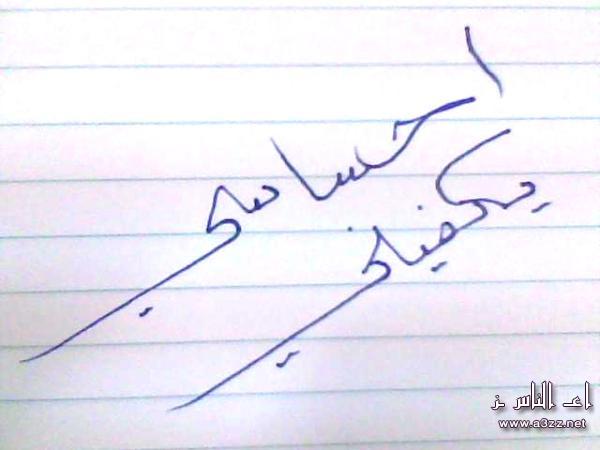 احساسي
يكفيني
اعـ الناس ـز
www.a3zz.net